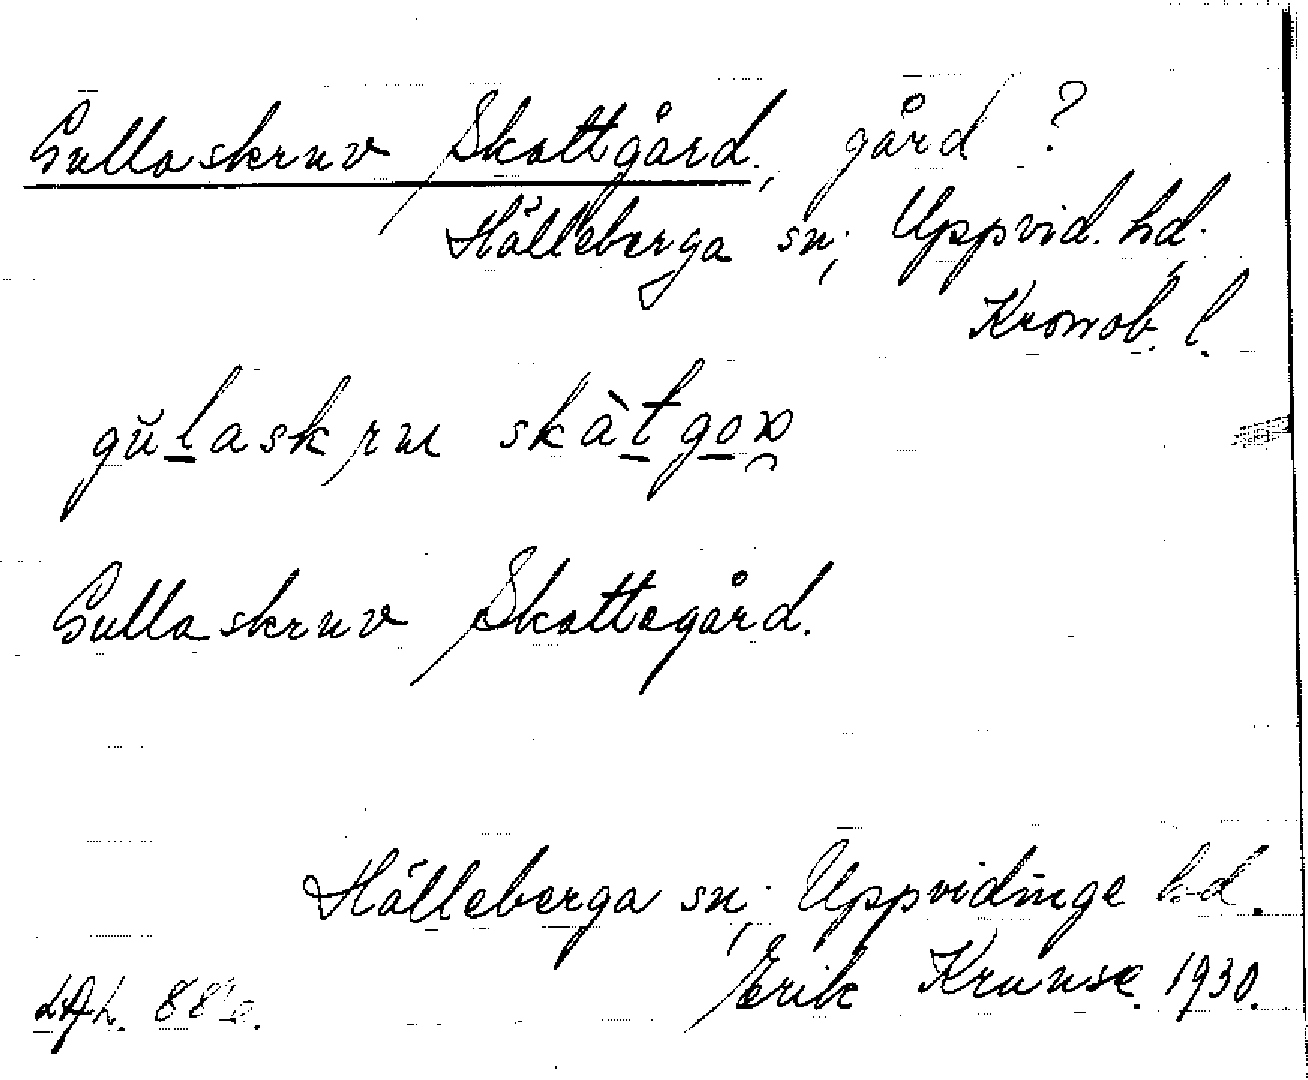 Gullaskruv Skattgård, gård ?
Hälleberga sn; Uppvid. hd.
Kronob. l.
gŭlaskru skàtgoɒ
Gullaskruv Skattegård.
Hälleberga sn; Uppvidinge hd.
Erik Kruuse. 1930.